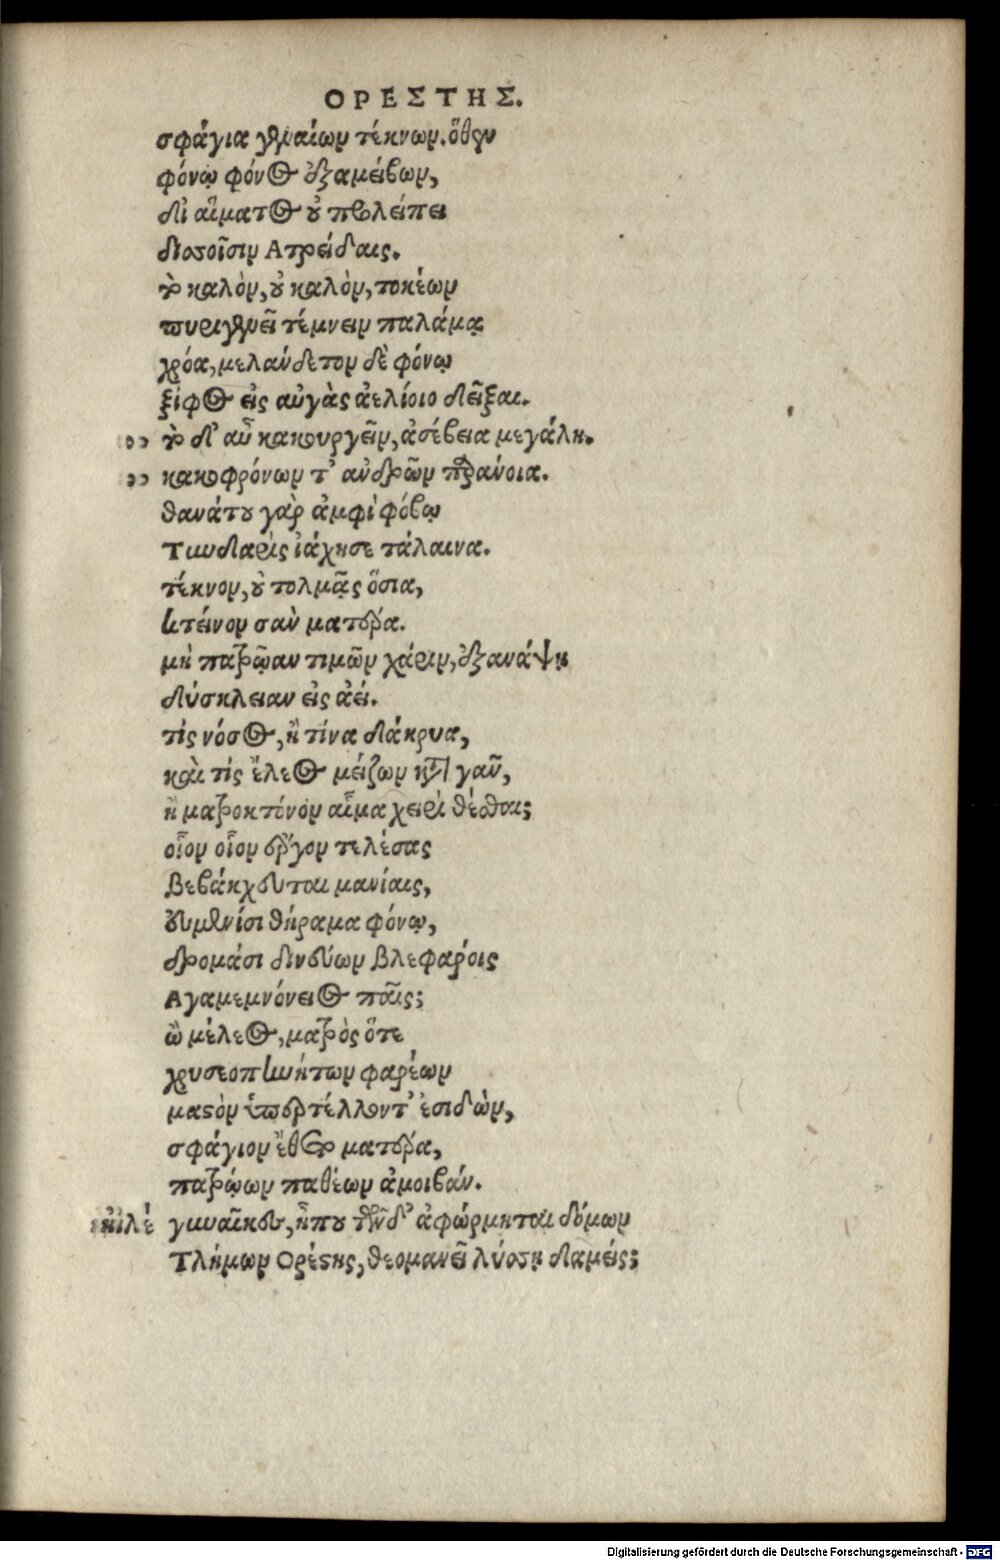 ΟΡΕΣΤΗΣ.
σφάγια γενναίων τέκνων. ὅθεν
φόνῳ φόνος ἐξαμείβων,
δι' αἵματος οὐ προλείπει
δισσοῖσιν Ἀτρείδαις.
τὸ καλὸν, οὐ καλὸν, τοκέων
πυριγενεῖ τέμνειν παλάμᾳ
χρόα, μελάνδετον δὲ φόνῳ
ξίφος εἰς αὐγὰς ἀελίοιο δεῖξαι.
,, τὸ δ' αὖ κακουργεῖν, ἀσέβεια μεγάλη.
,, κακοφρόνων τ' ἀνδρῶν παράνοια.
θανάτου γὰρ ἀμφὶ φόβῳ
Τυνδαρὶς ἰάχησε τάλαινα.
τέκνον, οὐ τολμᾷς ὅσια,
κτείνων σὰν ματέρα.
μὴ πατρῴαν τιμῶν χάριν, ἐξανάψῃ
δύσκλειαν εἰς ἀεί.
τίς νόσος, ἢ τίνα δάκρυα,
καὶ τίς ἔλεος μείζων κατὰ γᾶν,
ἢ ματροκτόνον αἷμα χειρὶ θέσθαι;
οἷον οἷον ἔργον τελέσας
βεβάκχευται μανίαις,
εὐμενίσι θήραμα φόνῳ,
δρομάσι δινεύων βλεφάροις
Ἀγαμεμνόνειος παῖς;
ὢ μέλεος, ματρὸς ὅτε
χρυσεοπηνήτων φαρέων
μαστὸν ὑπερτέλλοντ' ἐσιδὼν,
σφάγιον ἔθετο ματέρα,
πατρῴων παθέων ἀμοιβάν.
ἠλέ γυναῖκες, ἦπου τῶνδ' ἀφώρμηται δόμων
Τλήμων Ὀρέστης, θεομανεῖ λύσσῃ δαμείς;
Digitalisierung gefördert durch die Deutsche Forschungsgemeinschaft - DFG